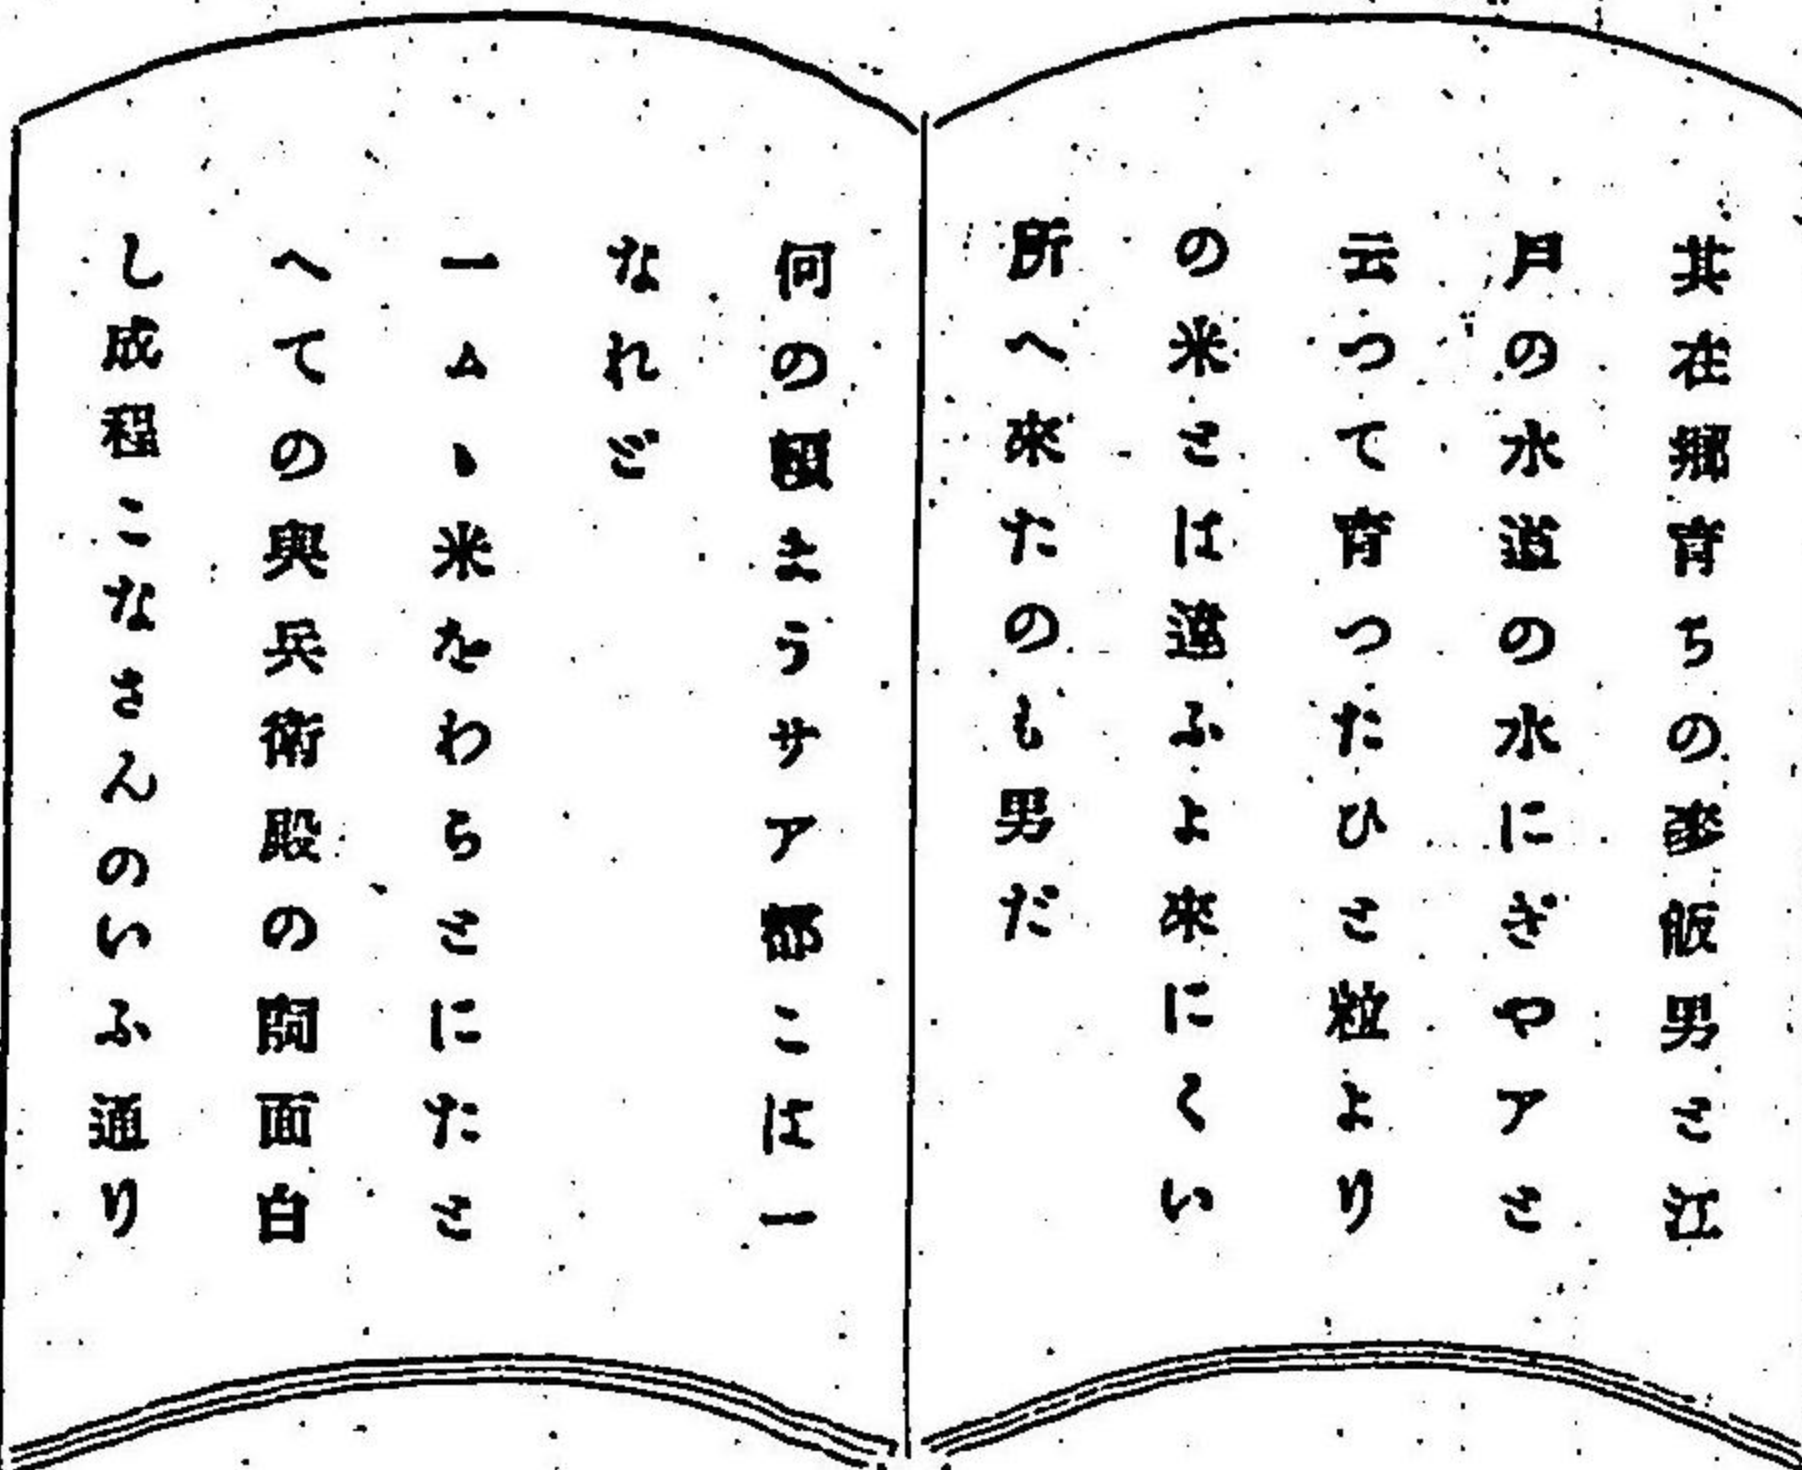 其在郷育ちの麥飯男と江
戸の水道の水にぎやアと
云つて育つたひと粒より
の米とは違ふよ來にくい
所へ來たのも男だ
何の頭まうサア都こは一
なれど
一ムヽ米をわらとにたと
へての與兵衛殿の間面白
し成程こなさんのいふ通り